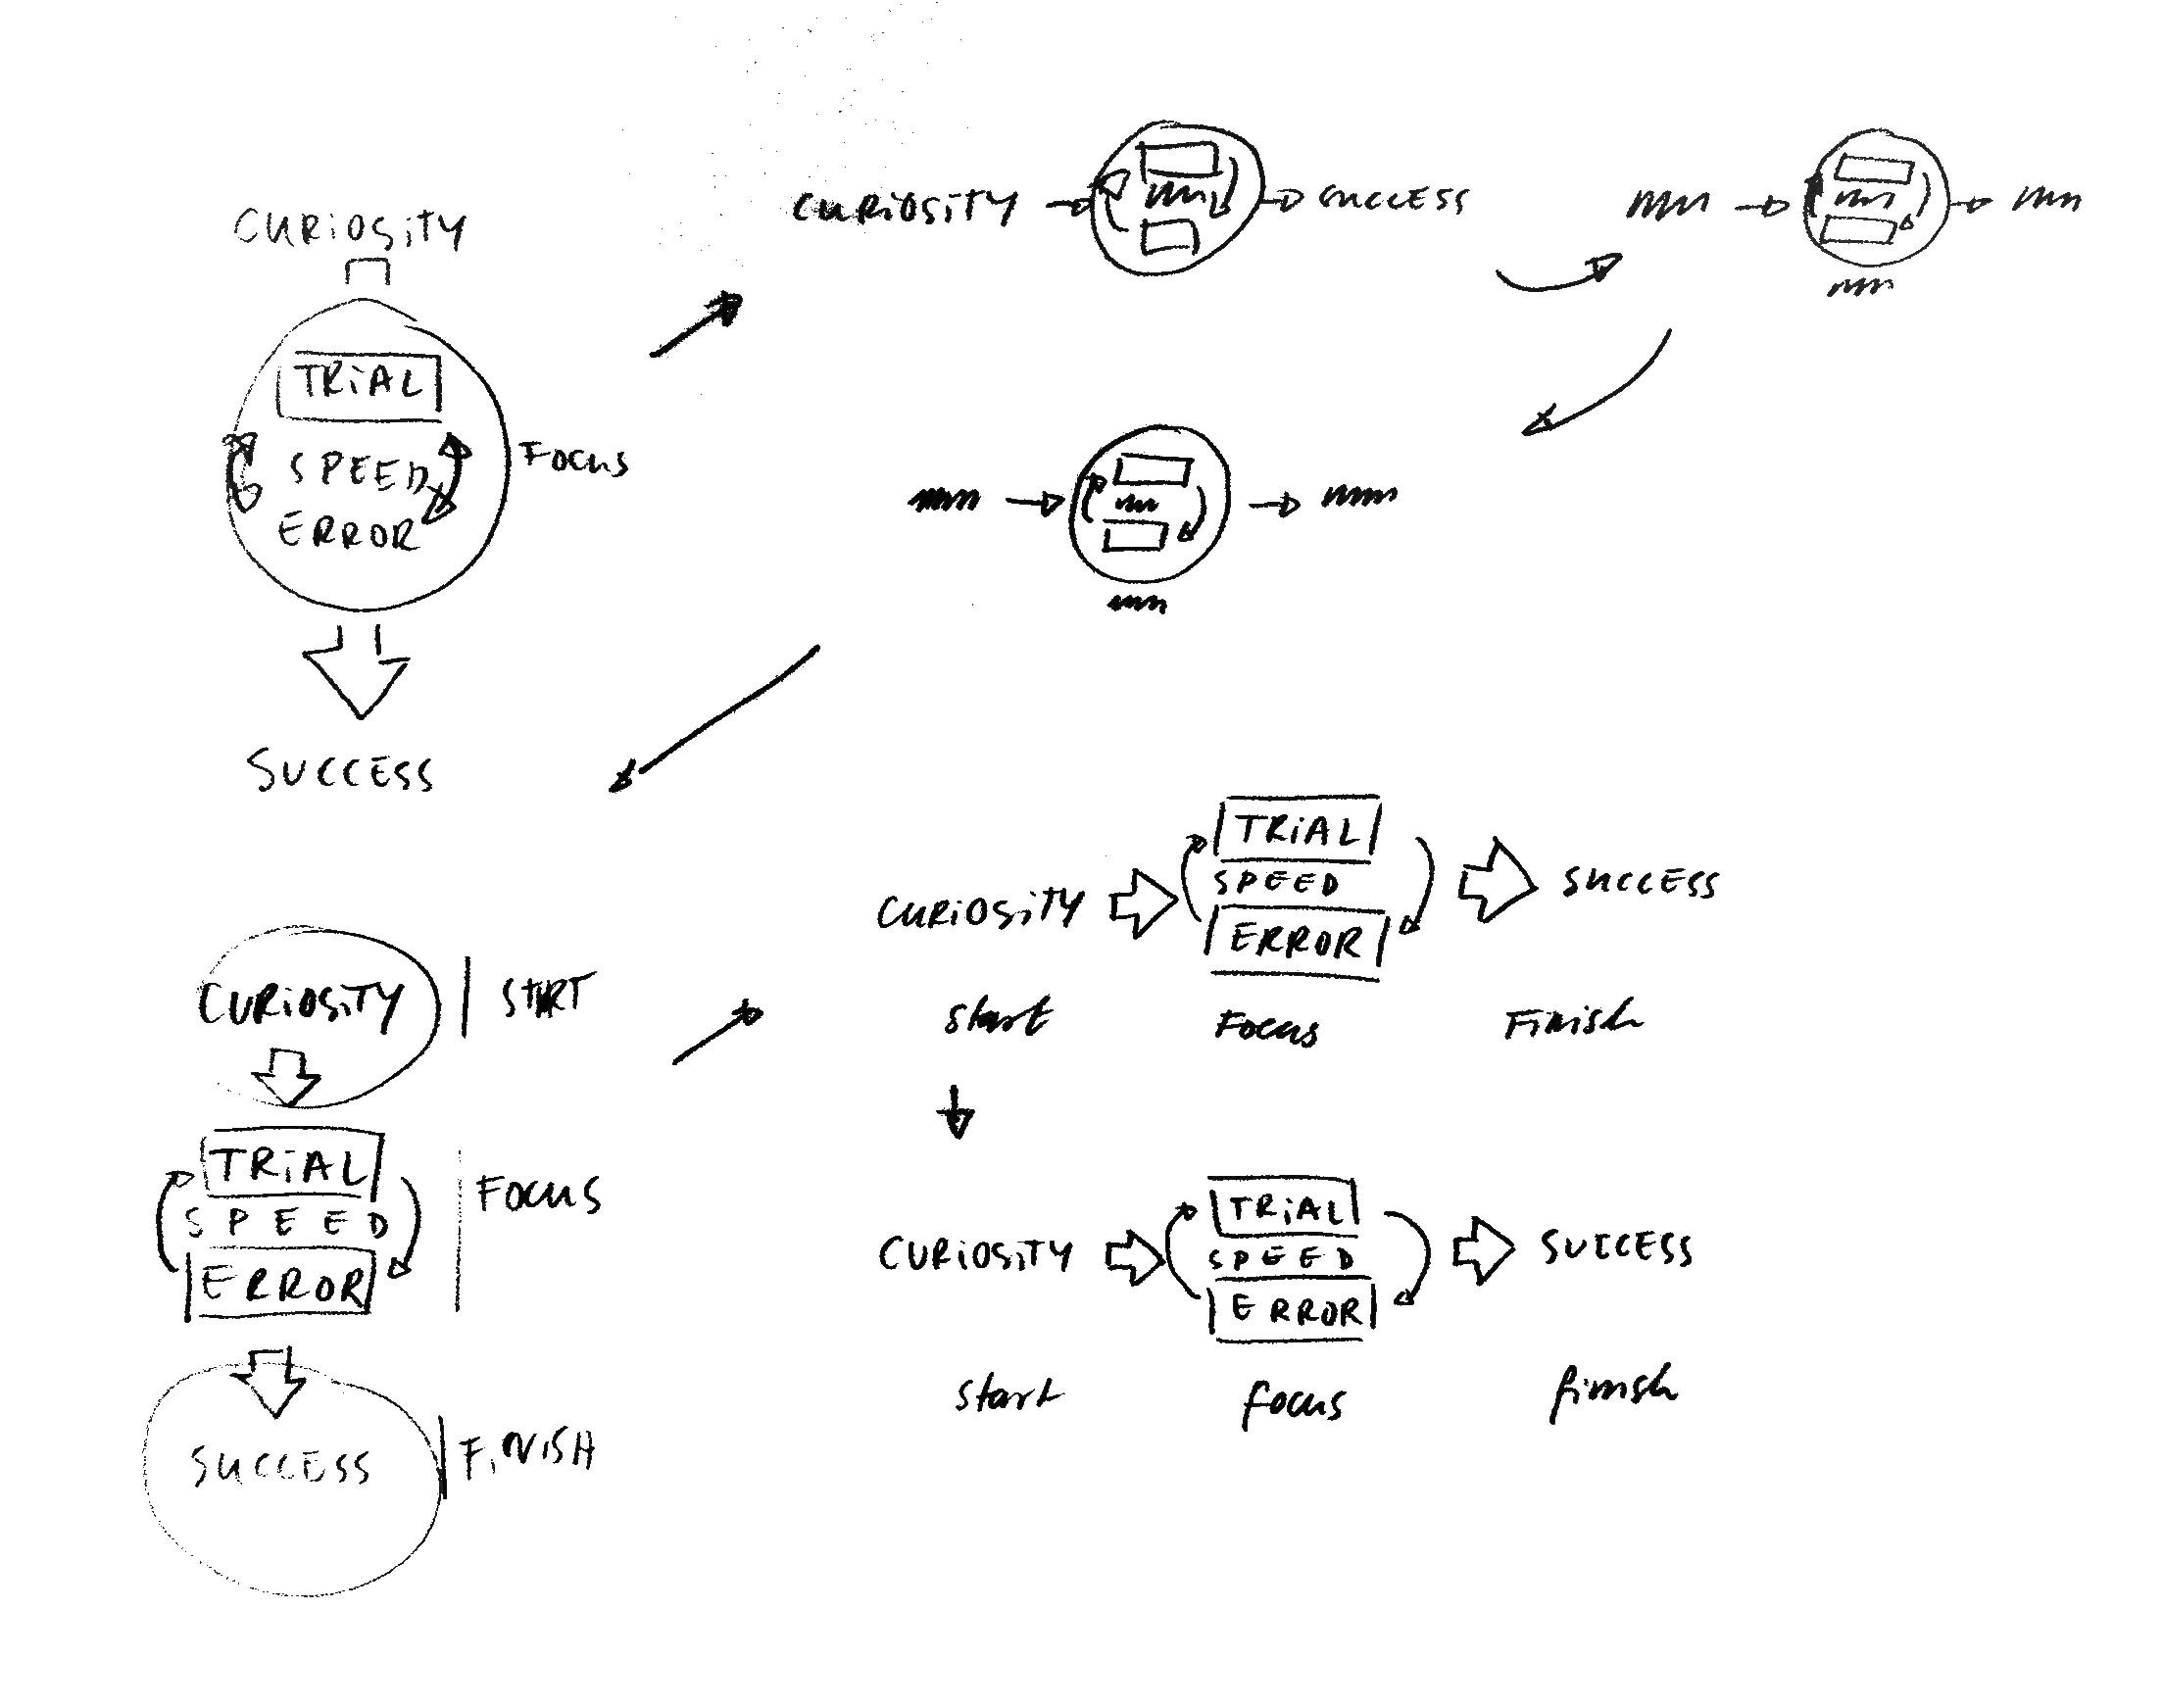 CURiOSiTY
TRiAL
SPEED
ERROR
FOCUS
SUCCESS
CURiOSiTY
SUCCESS
CURiOSiTY
START
TRiAL
SPEED
ERROR
FOCUS
SUCCESS
FiNiSH
CURiOSiTY
TRiAL
SPEED
ERROR
SUCCESS
start
Focus
Finish
CURiOSiTY
TRiAL
SPEED
ERROR
SUCCESS
start
focus
finish